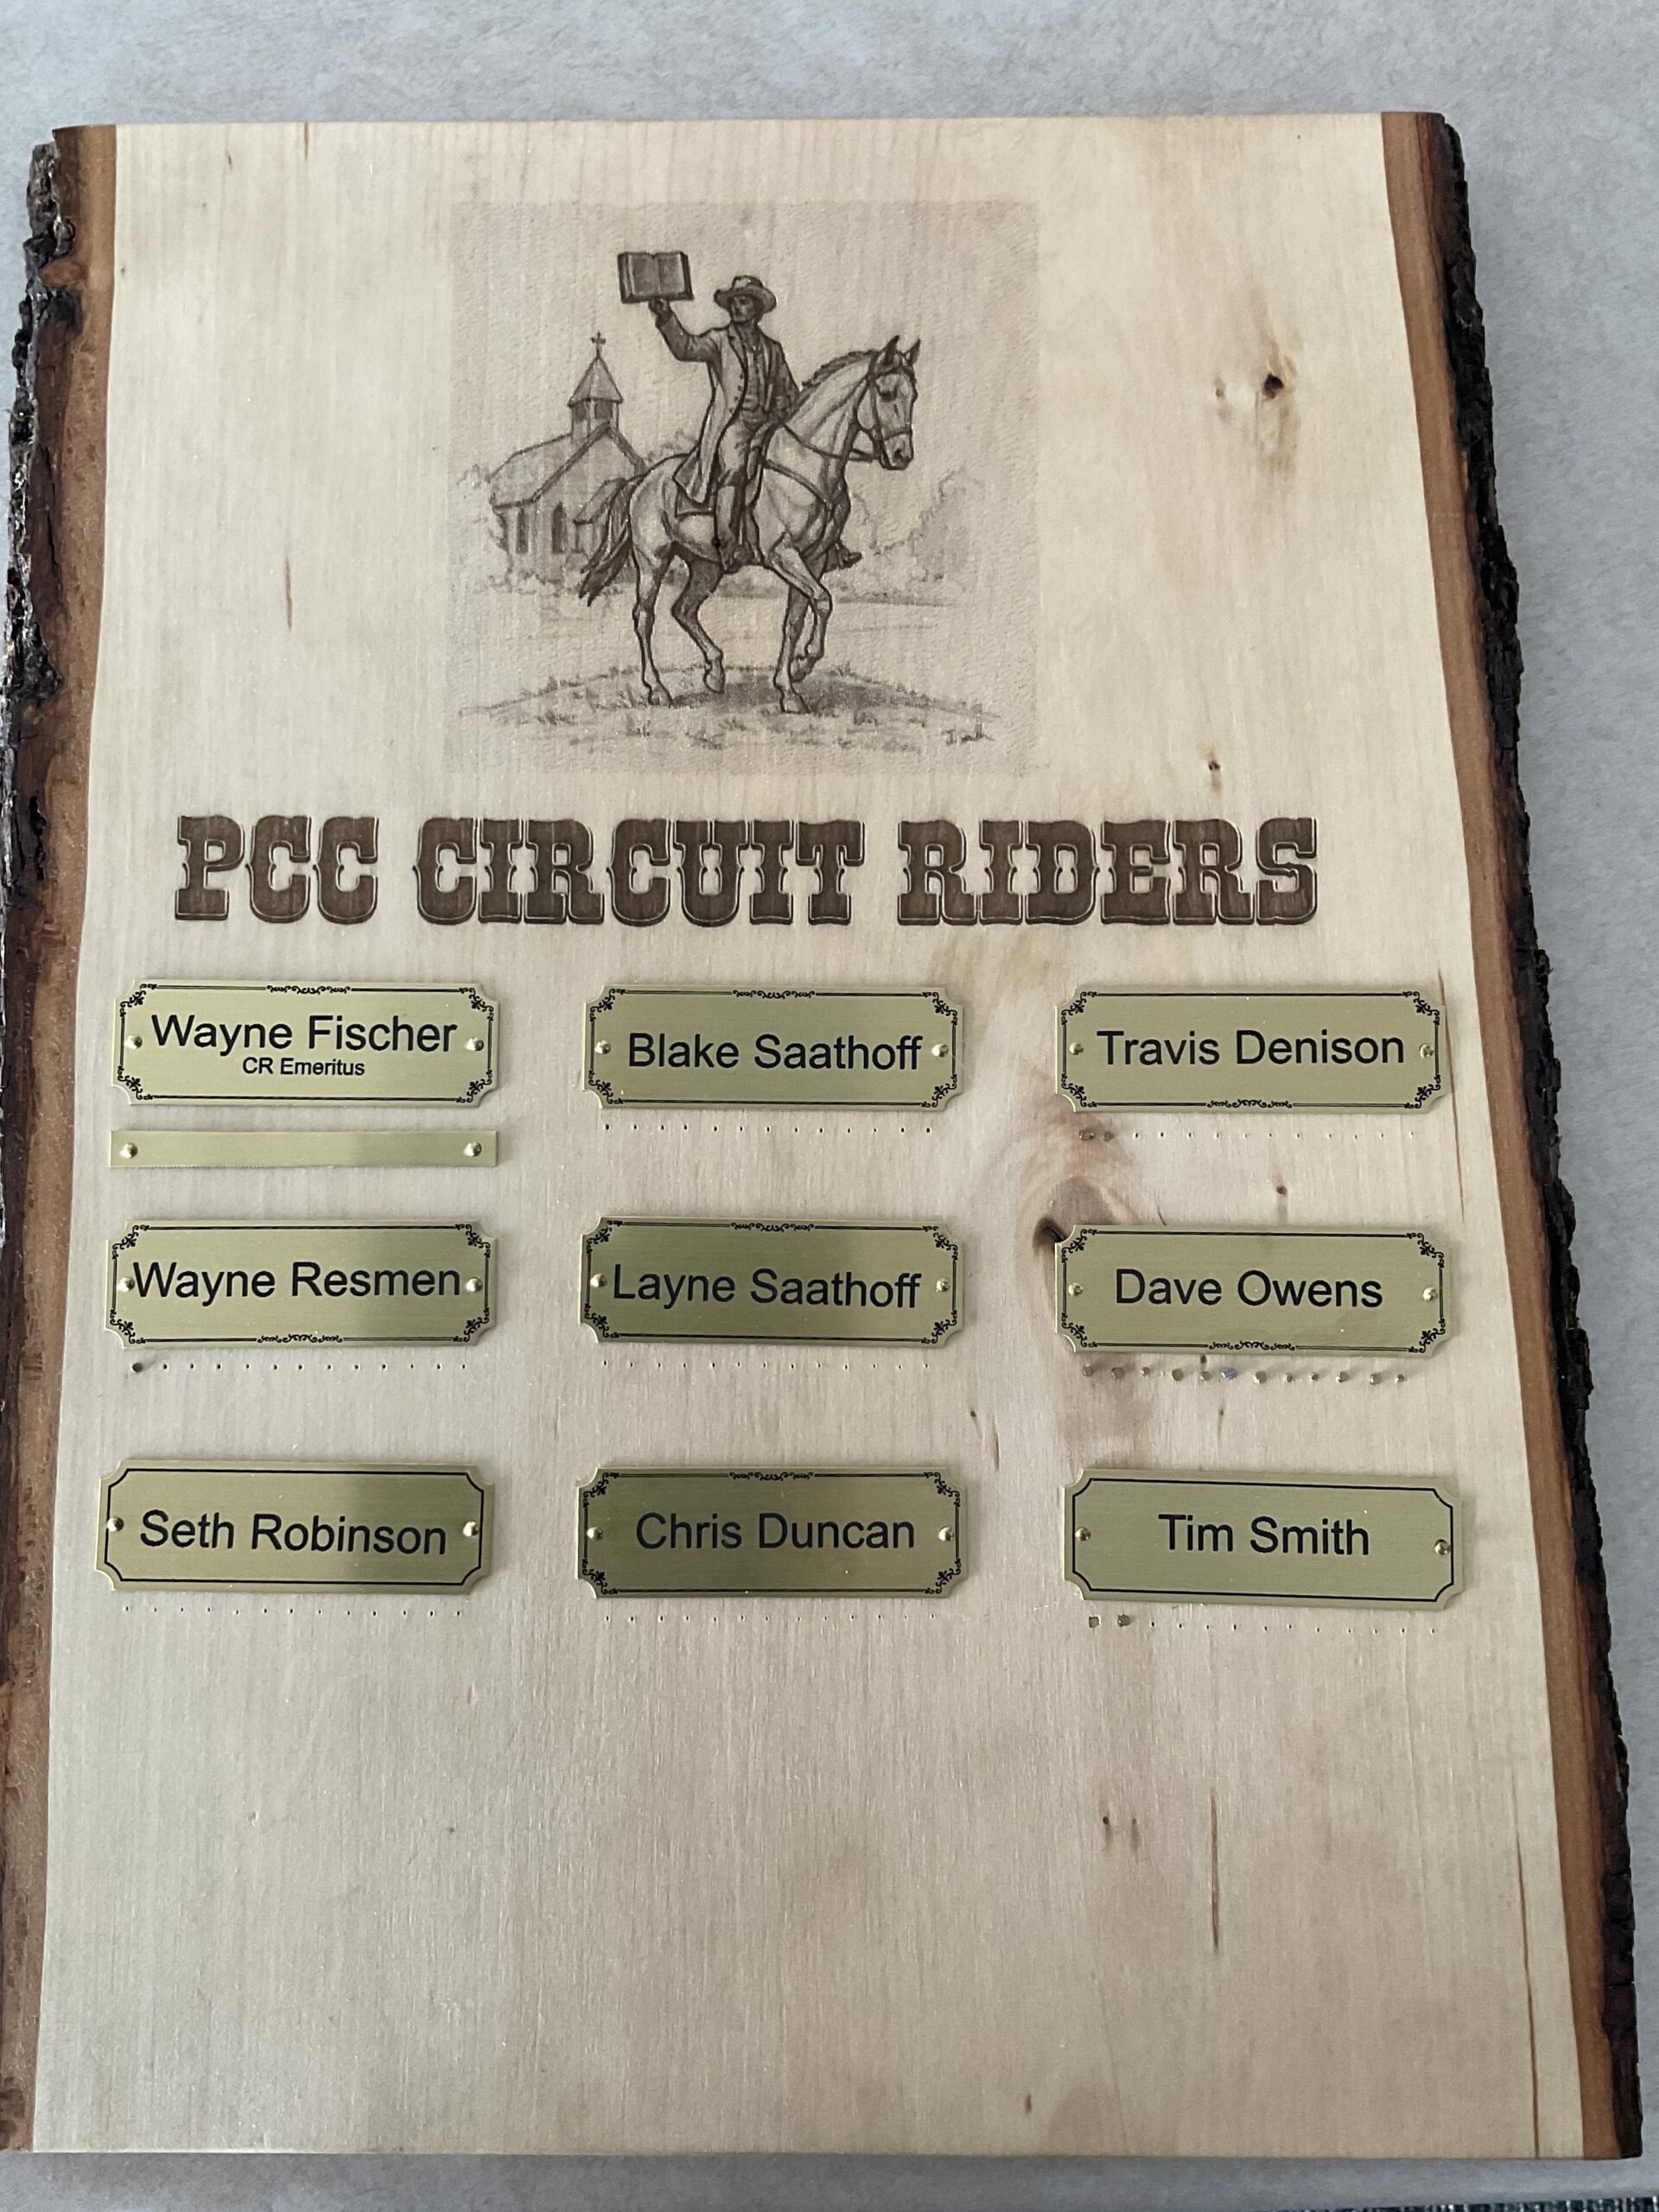 PCC CIRCUIT RIDERS
Wayne Fischer
CR Emeritus
Blake Saathoff
Travis Denison
Wayne Resmen
Layne Saathoff
Dave Owens
Seth Robinson
Chris Duncan
Tim Smith